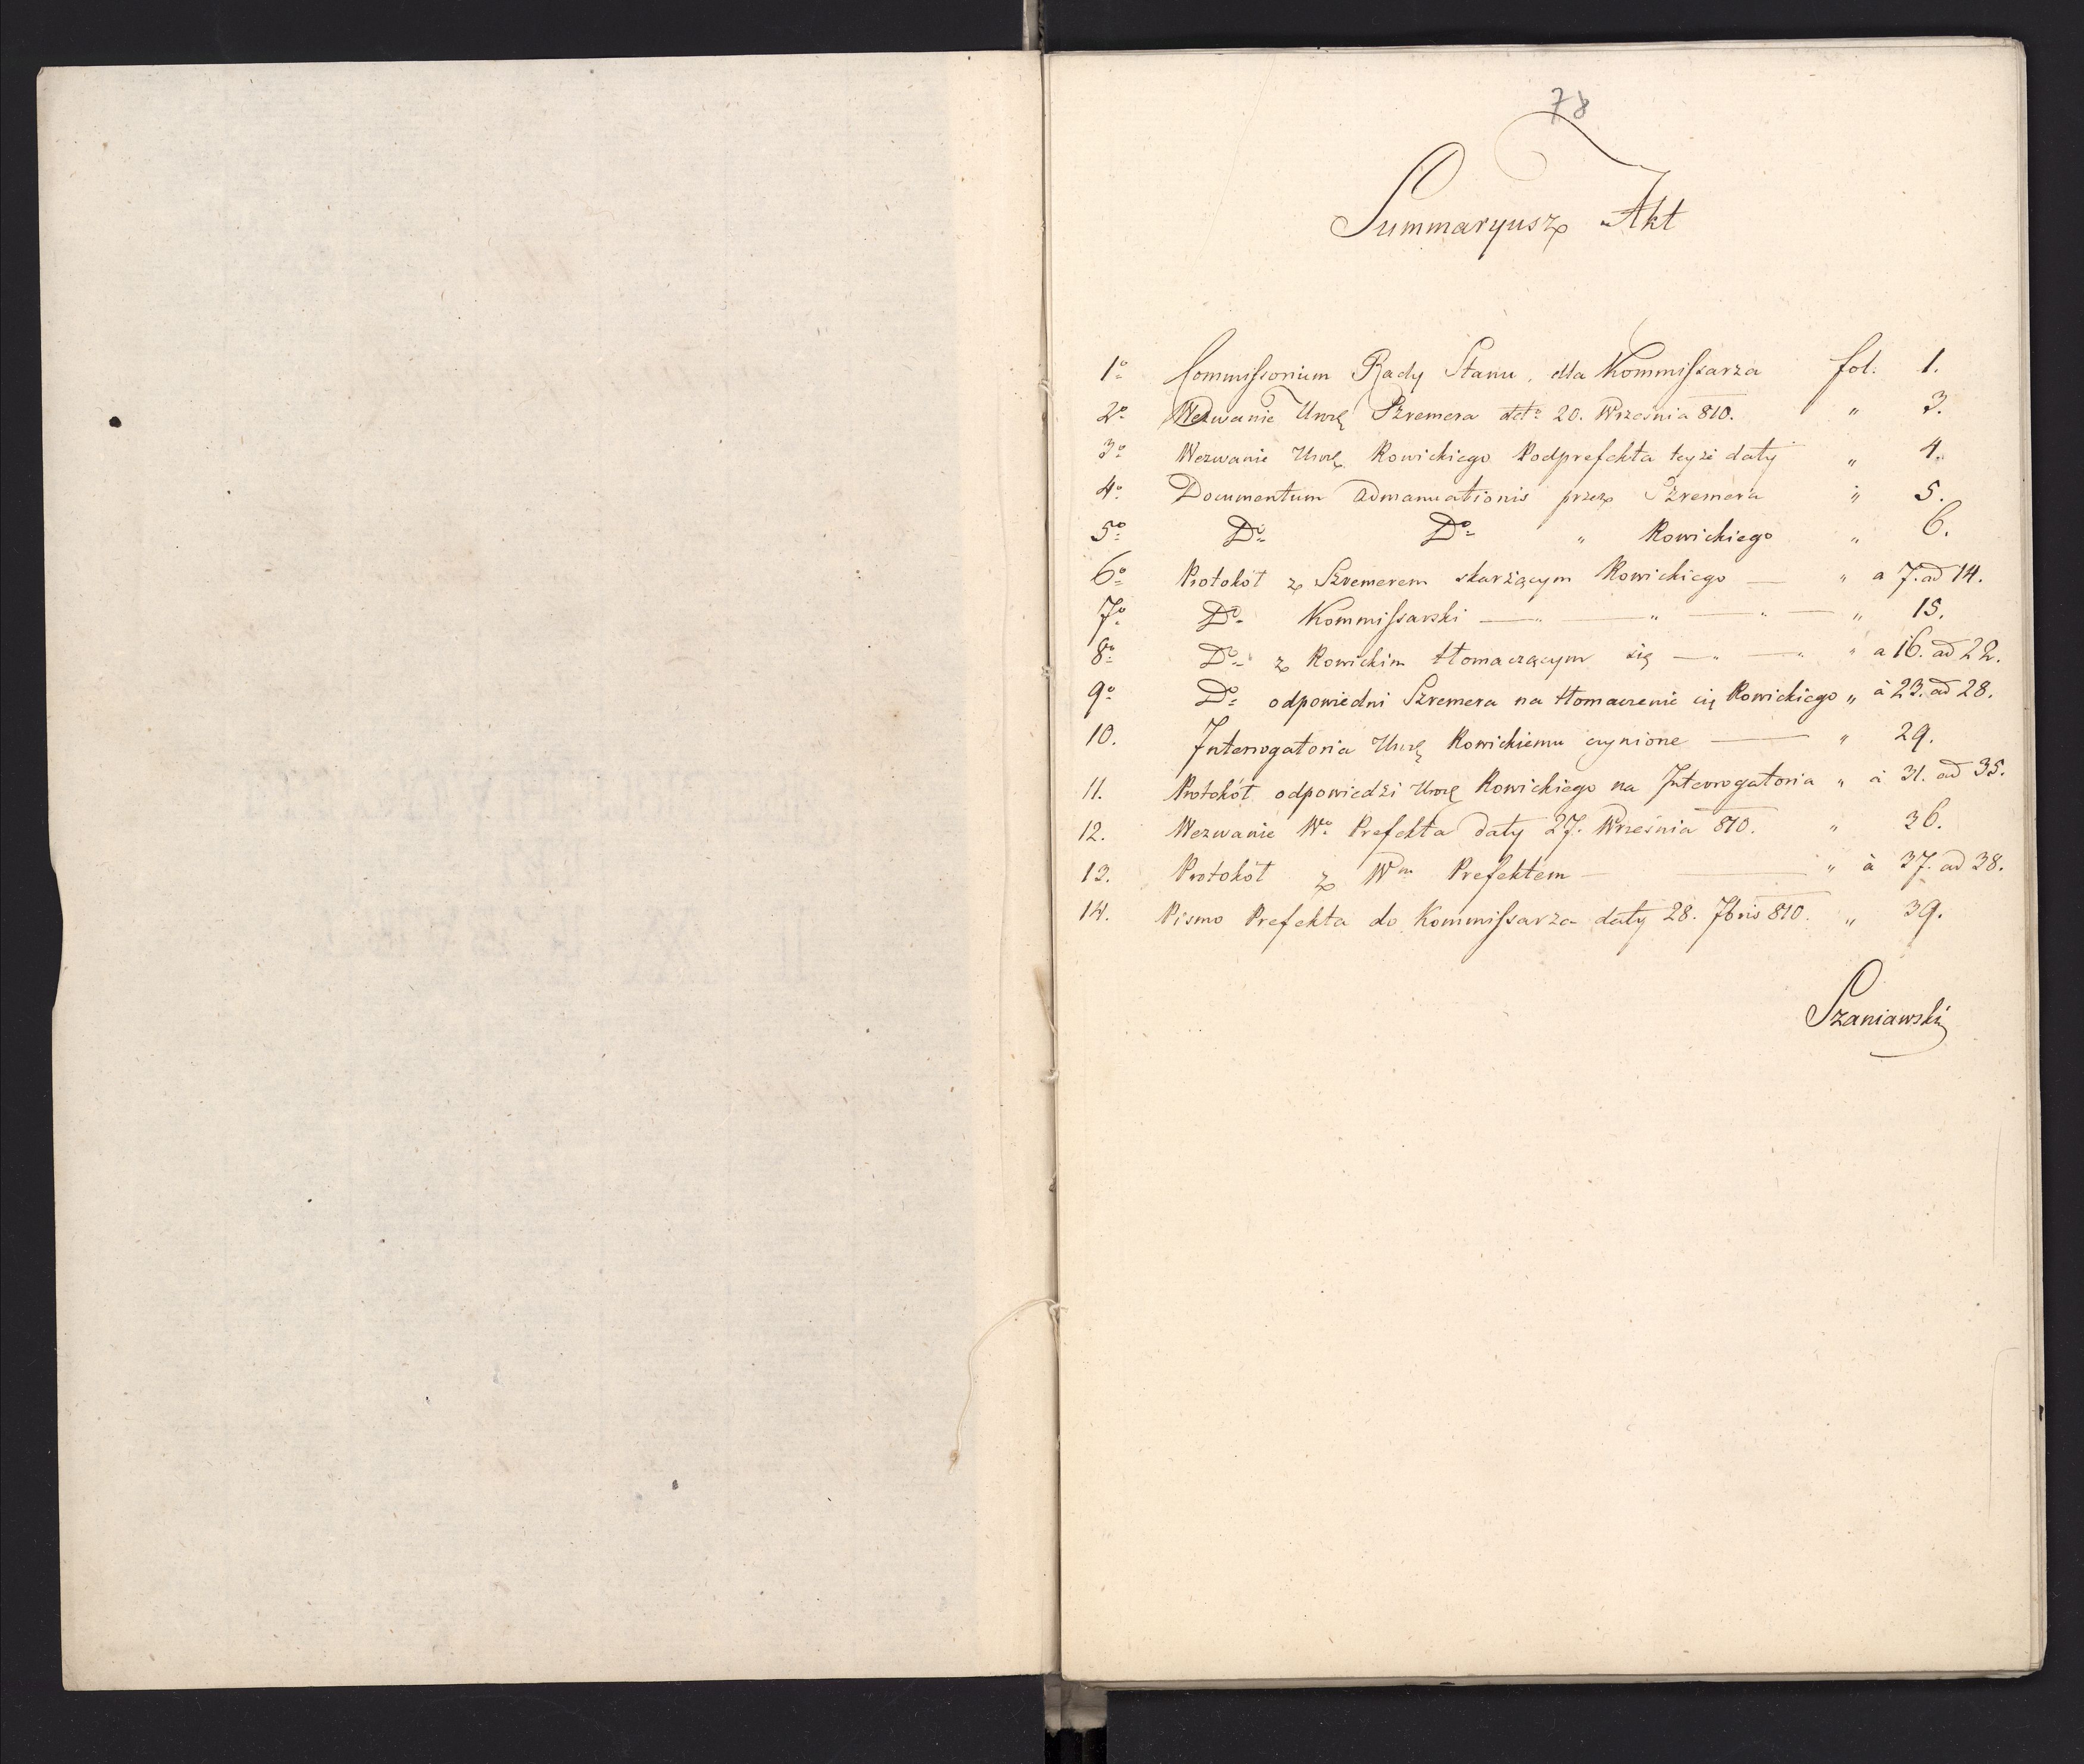 78
Summaryusz Akt
1º Commissorium Rady Stanu dla Kommissarza fol. 1.
2º Wezwanie Urołę Szremera dtto 20. Września 810. " 3.
3º Wezwanie Urołę Rowickiego Podprefekta teyże daty " 4.
4º Documentum admanuationis przez Szremera " 5.
5º Dº Dº " Rowickiego " 6.
6º Protokół z Szremerem skarżącym Rowickiego — " a 7. ad 14.
7º Dº Kommissarski — " — " — " — " 15.
8º Dº z Rowickim tłomaczącym się — " — " " a 16. ad 22.
9º Dº odpowiedni Szremera na tłomaczenie się Rowickiego " à 23. ad 28.
10. Interrogatoria Urołę Rowickiemu czynione — " 29.
11. Protokół odpowiedzi Urołę Rowickiego na Interrogatoria " à 31. ad 35.
12. Wezwanie Wº Prefekta daty 27. Września 810. " 36.
13. Protokół z Wm Prefektem — " à 37. ad 38.
14. Pismo Prefekta do Kommissarza daty 28. 7bris 810. " 39.
Szaniawski